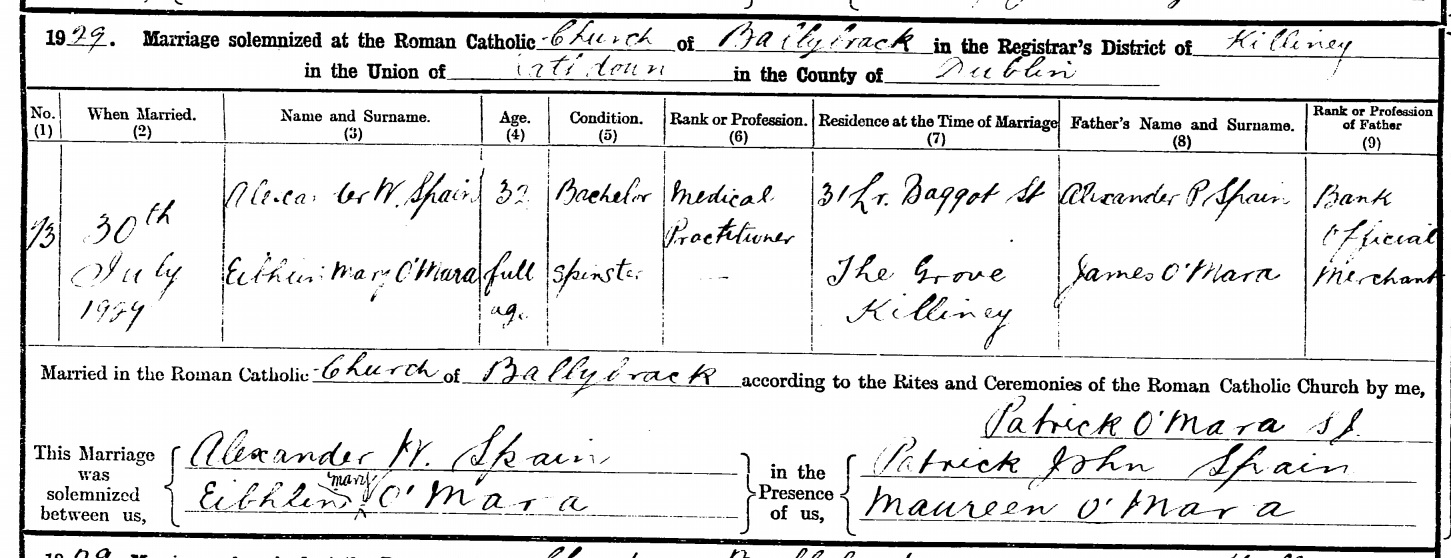 1929. Marriage solemnized at the Roman Catholic Church of Ballybrack in the Registrar's District of Killiney
in the Union of in the County of Dublin
No. (1) When Married. (2) Name and Surname. (3) Age. (4) Condition. (5) Rank or Profession. (6) Residence at the Time of Marriage (7) Father's Name and Surname. (8) Rank or Profession of Father (9)
Alexander W. Spain 32 Bachelor Medical Practitioner 31 Lr. Baggot St Alexander P. Spain Bank Official
30th July 1929
Eibhlin Mary O'Mara full age Spinster — The Grove Killiney James O'Mara Merchant
Married in the Roman Catholic Church of Ballybrack according to the Rites and Ceremonies of the Roman Catholic Church by me,
Patrick O'Mara S.J.
This Marriage was solemnized between us,
Alexander W. Spain
Eibhlin Mary O'Mara
in the Presence of us,
Patrick John Spain
Maureen O'Mara